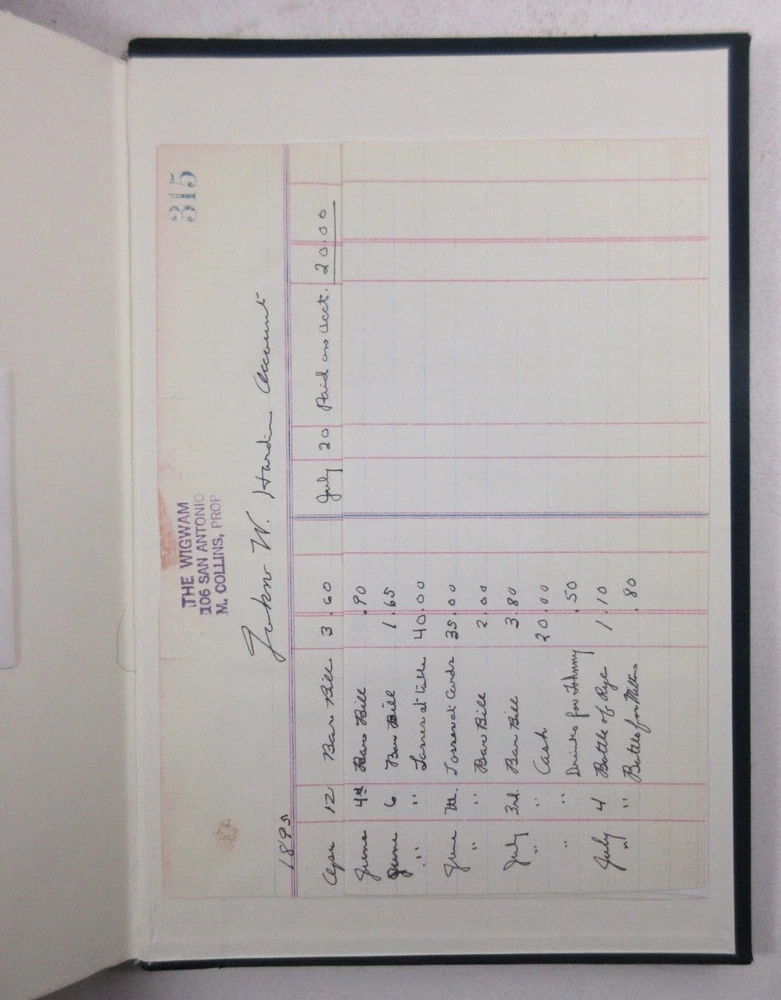 315
THE WIGWAM
106 SAN ANTONIO
M. COLLINS, PROP
John W. Hardin Account
1895
Apr 12 Bar Bill 3.60 July 20 Paid on Acct. 20.00
June 4th Bar Bill .90
June 6 Bar Bill 1.65
" " Losses at table 40.00
June 7th. Losses at Cards 35.00
" " Bar Bill 2.00
July 3rd. Bar Bill 3.80
" " Cash 20.00
" " Drinks for Johnny .50
July 4 Bottle of Rye 1.10
" " Bottle for .80